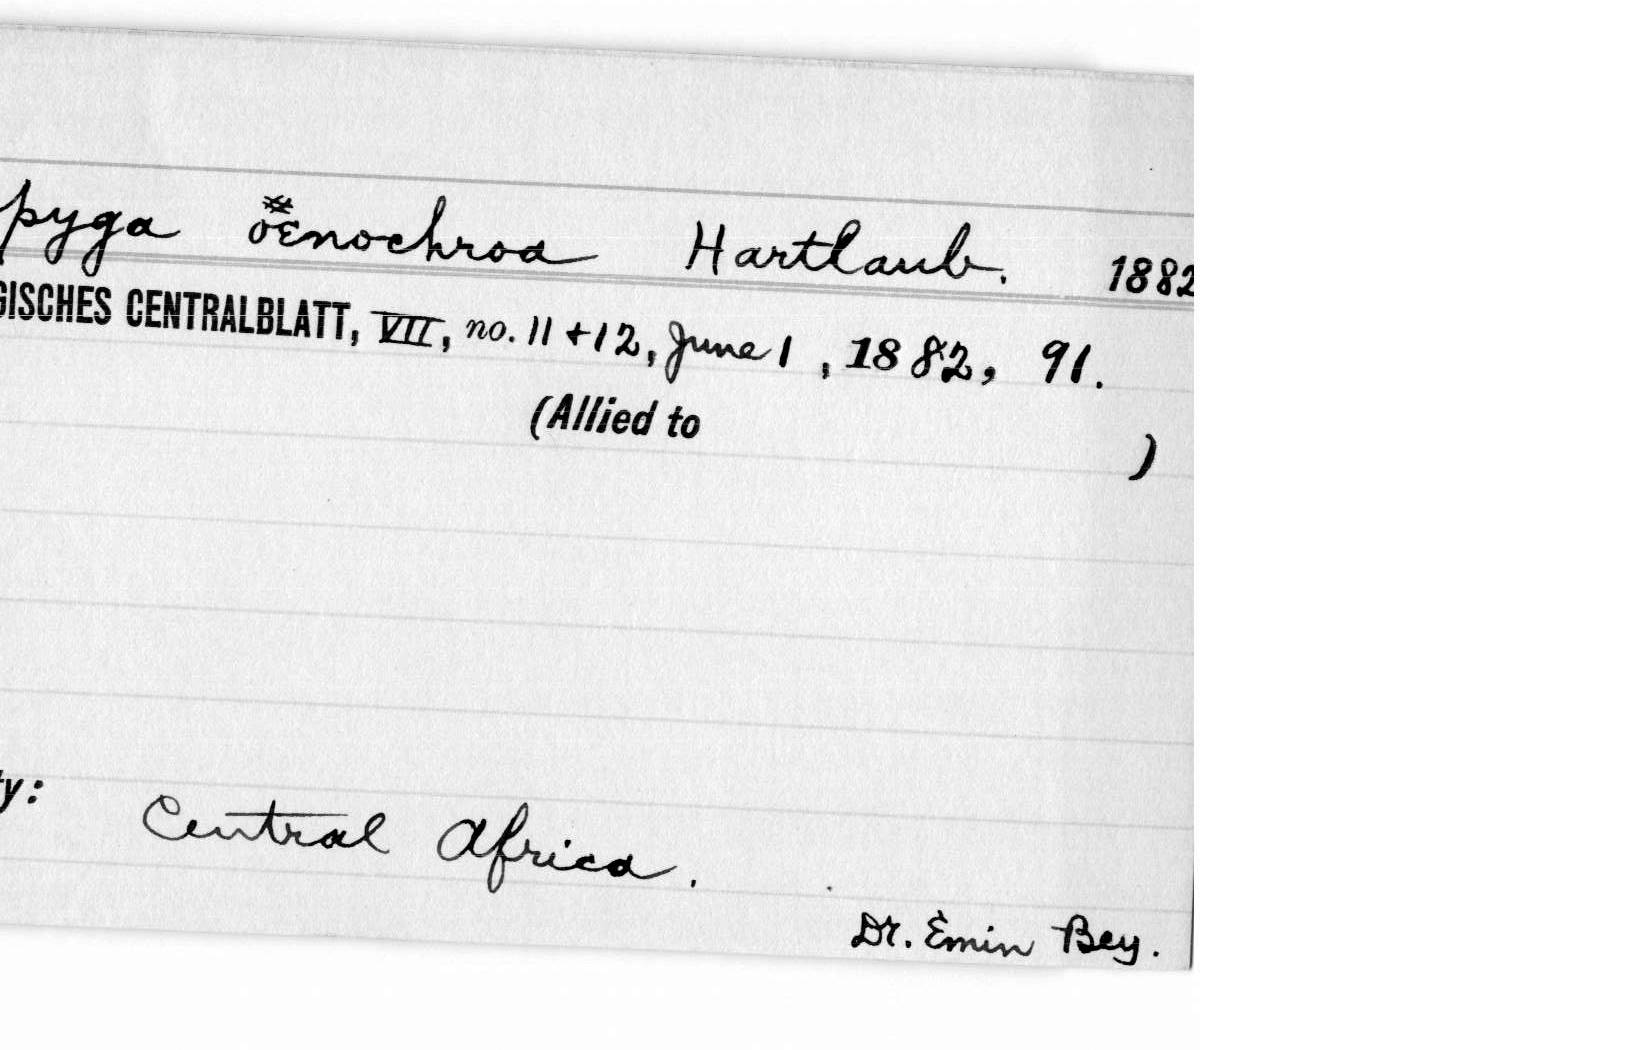 pyga œnochroa Hartlaub. 1882
GISCHES CENTRALBLATT, VII, no. 11 + 12, June 1, 1882, 91.
(Allied to )
ty: Central Africa.
Dr. Emin Bey.